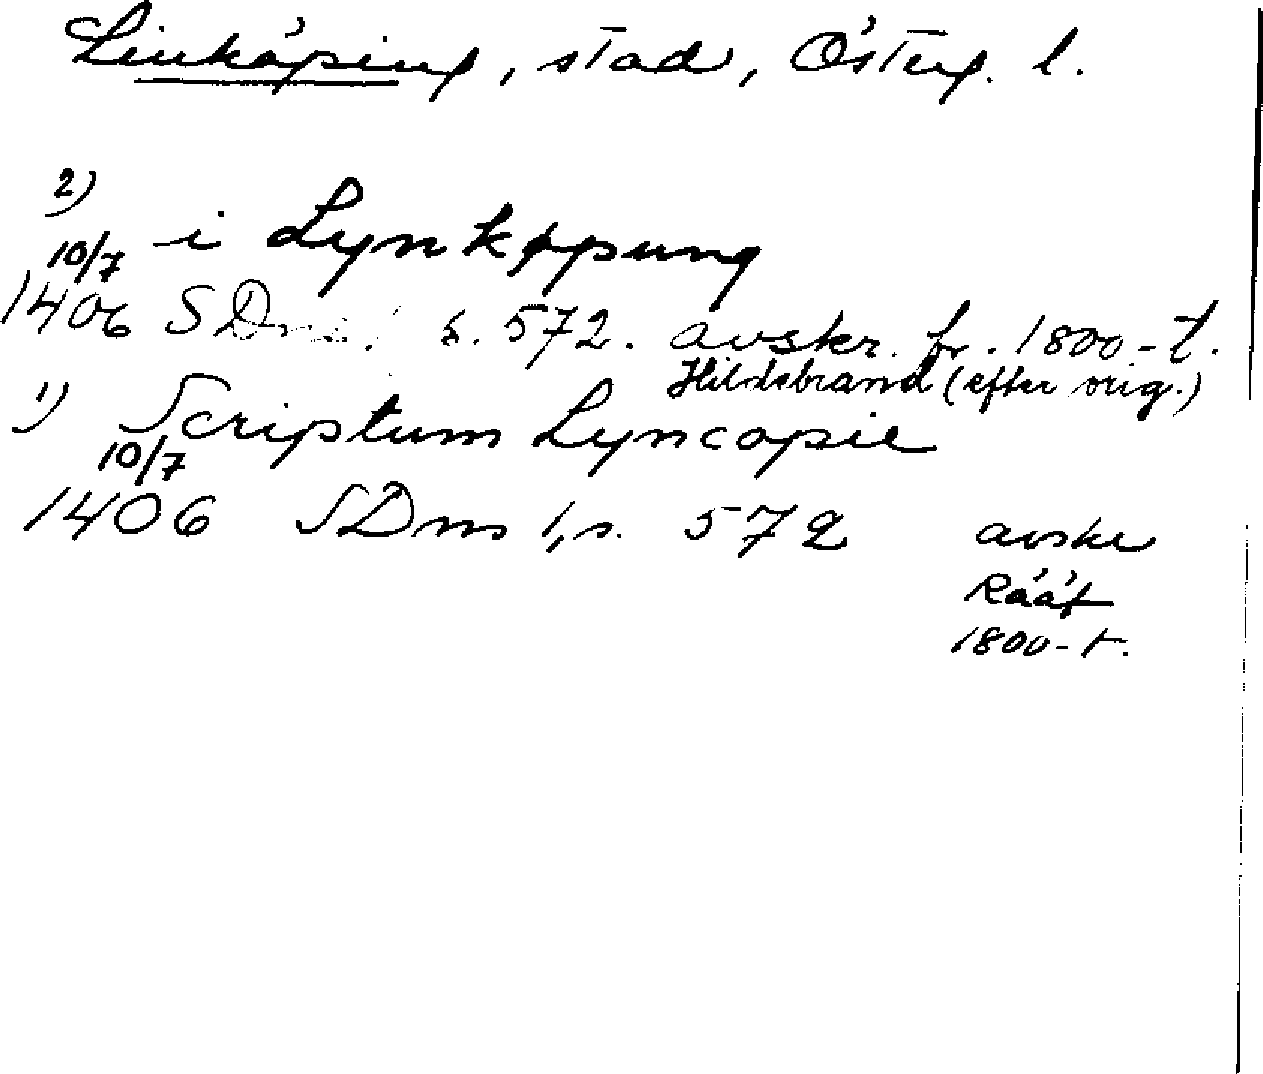 Linköping, stad, Österg. l.
2)
10/7 i Lynkøpung
1406 SDns 1 s. 572. avskr. fr. 1800-t.
Hildebrand (efter orig.)
1) Scriptum Lyncopie
10/7
1406 SDns 1, s. 572 avskr
Rääf
1800-t.